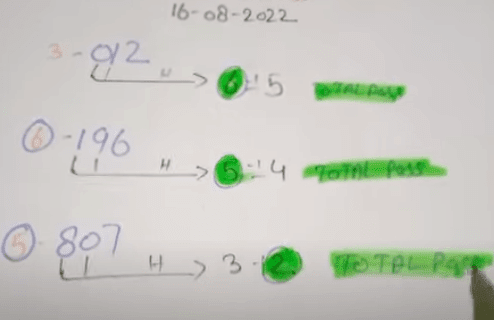 16-08-2022
3-012
H 6-!5 TOTAL Pass
6-196
H 5-!4 TOTAL Pass
5-807
H 3-!2 TOTAL Pass